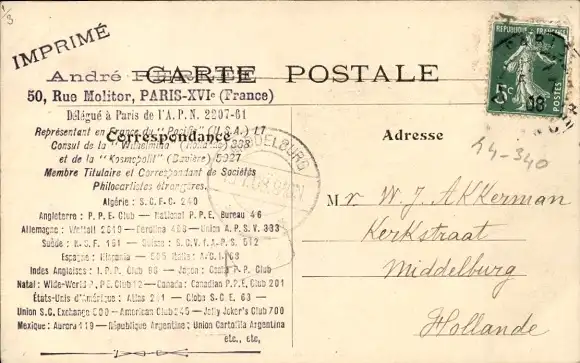 1/3
IMPRIMÉ
CARTE POSTALE
André
50, Rue Molitor, PARIS-XVIe (France)
Délégué à Paris de l'A.P.N. 2207-81
Correspondance
Adresse
Représentant en France du "Pacific" (U.S.A.) 17
Consul de la "Wilhelmina" (Hollande) 338
et de la "Kosmopolit" (Bavière) 5927
Membre Titulaire et Correspondant de Sociétés
Philocartistes étrangères.
Algérie : S.C.F.C. 240
Angleterre : P.P.E. Club — National P.P.E. Bureau 46
Allemagne : Weltall 2019 — Union A.P.S.V. 303
Suède : K.S.F. 161 — Suisse : S.C.V.f.A.P.S. 512
Espagne : Hispania
Indes Anglaises : I.P.P. Club 98 — Japon : P.P. Club
Natal : Wide-World P.P.E. Club 12 — Canada : Canadian P.P.E. Club 201
États-Unis d'Amérique : Atlas 261 — Globe S.C.E. 63 —
Union S.C. Exchange 500 — American Club 345 — Jolly Joker's Club 700
Mexique : Aurora 119 — République Argentine : Union Cartofila Argentina
etc., etc.
MIDDELBURG
RÉPUBLIQUE FRANÇAISE
5c
POSTES
08
44-340
Mr W. J. Akkerman
Kerkstraat
Middelburg
Hollande